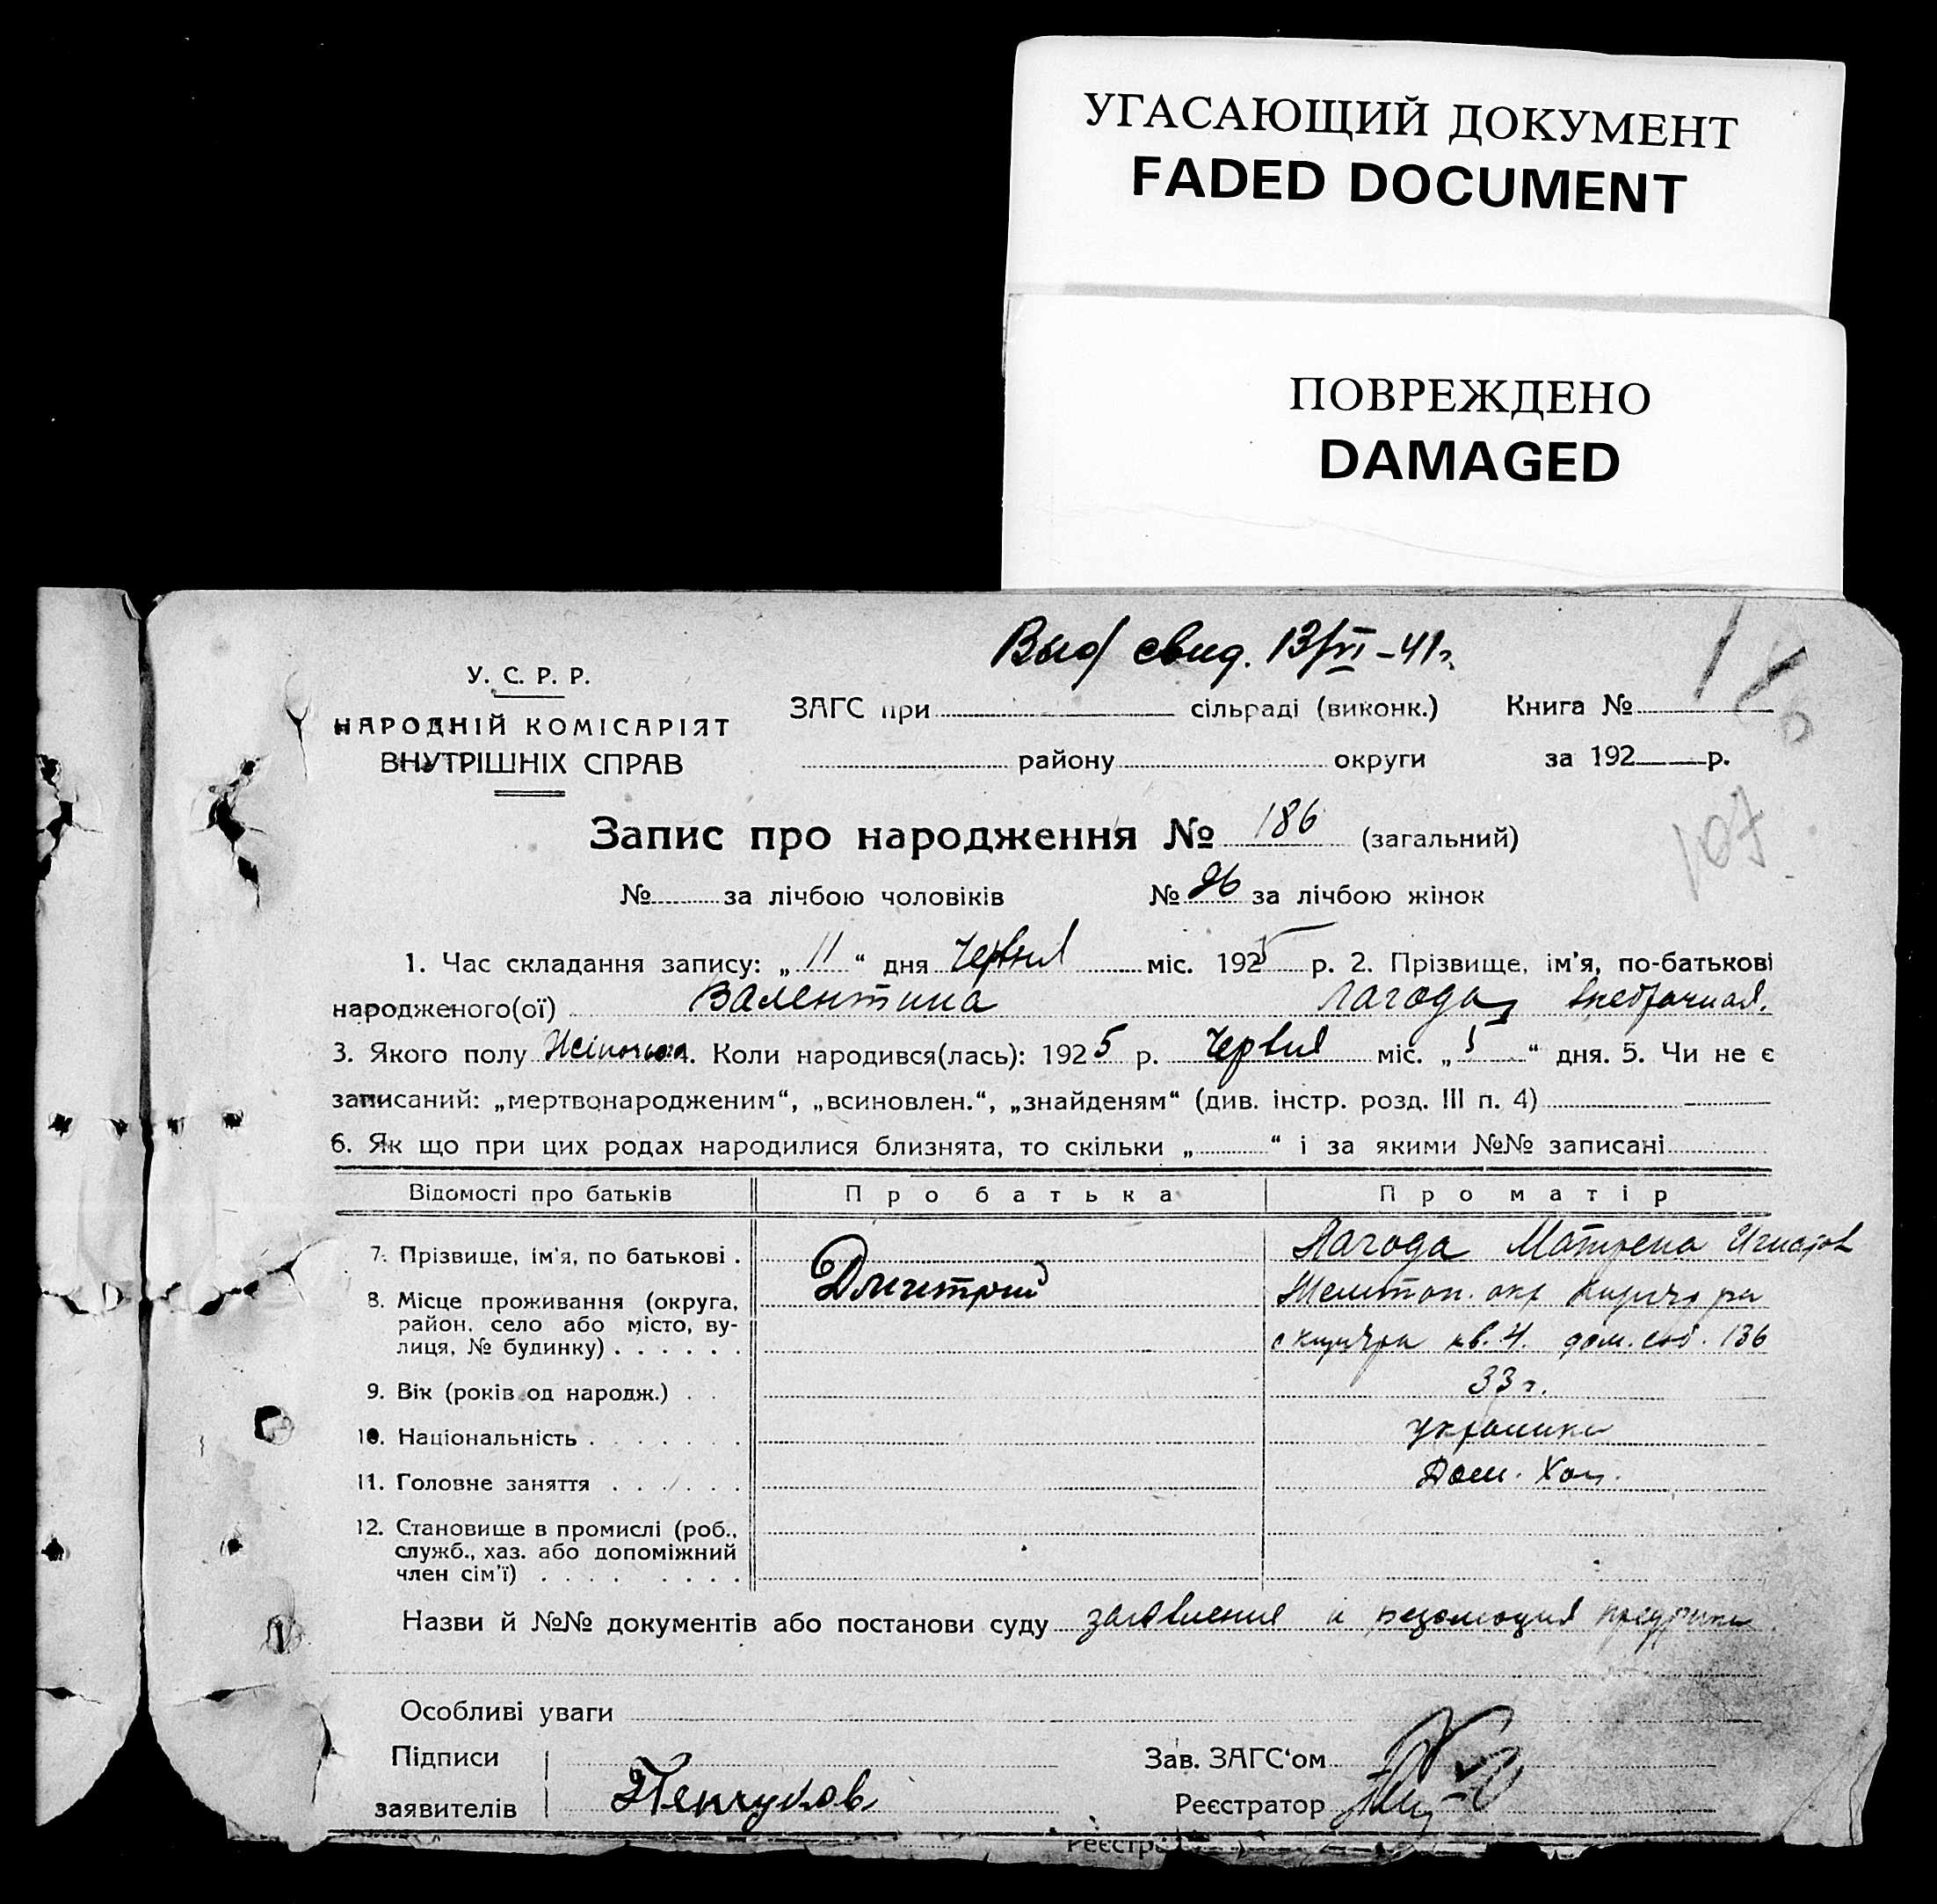 УГАСАЮЩИЙ ДОКУМЕНТ
FADED DOCUMENT
ПОВРЕЖДЕНО
DAMAGED
Выд свид. 13/VI-41г.
У. С. Р. Р.
НАРОДНІЙ КОМІСАРІЯТ
ВНУТРІШНІХ СПРАВ
ЗАГС при сільраді (виконк.) Книга №
району округи за 192 р.
107
Запис про народження № 186 (загальний)
№ за лічбою чоловіків № 96 за лічбою жінок
1. Час складання запису: „ 11 “ дня Червня міс. 1925 р. 2. Прізвище, ім'я, по-батькові
народженого(ої) Валентина Лагода, внебрачная.
3. Якого полу Жіночого 4. Коли народився(лась): 1925 р. Червня міс. „ 5 “ дня. 5. Чи не є
записаний: „мертвонародженим“, „всиновлен.“, „знайденям“ (див. інстр. розд. III п. 4)
6. Як що при цих родах народилися близнята, то скільки „ “ і за якими №№ записані
Відомості про батьків Про батька Про матір
7. Прізвище, ім'я, по батькові . Дмитрий Лагода Матрена Игнатов
8. Місце проживання (округа, Мелитоп. окр
район, село або місто, ву-
лиця, № будинку) . . . . . . кв. 4. дом. соб. 136
9. Вік (років од народж.) . . 33 г.
10. Національність . . . . . . . украинка
11. Головне заняття . . . . . . Дом. Хоз.
12. Становище в промислі (роб.,
служб., хаз. або допоміжний
член сім'ї) . . . . . . . .
Назви й №№ документів або постанови суду заявления и резолюция
Особливі уваги
Підписи Зав. ЗАГС'ом
заявителів Реєстратор
Реєстр